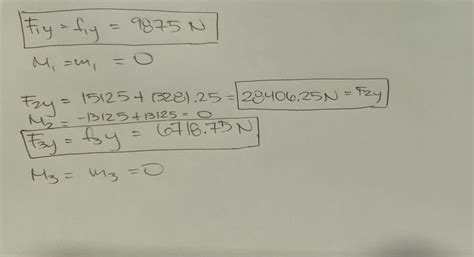 F1y = f1y = 9875 N
M1 = m1 = 0
F2y = 15125 + 13281.25 = 28406.25N = F2y
M2 = -13125 + 13125 = 0
F3y = f3y = 6718.75N
M3 = m3 = 0